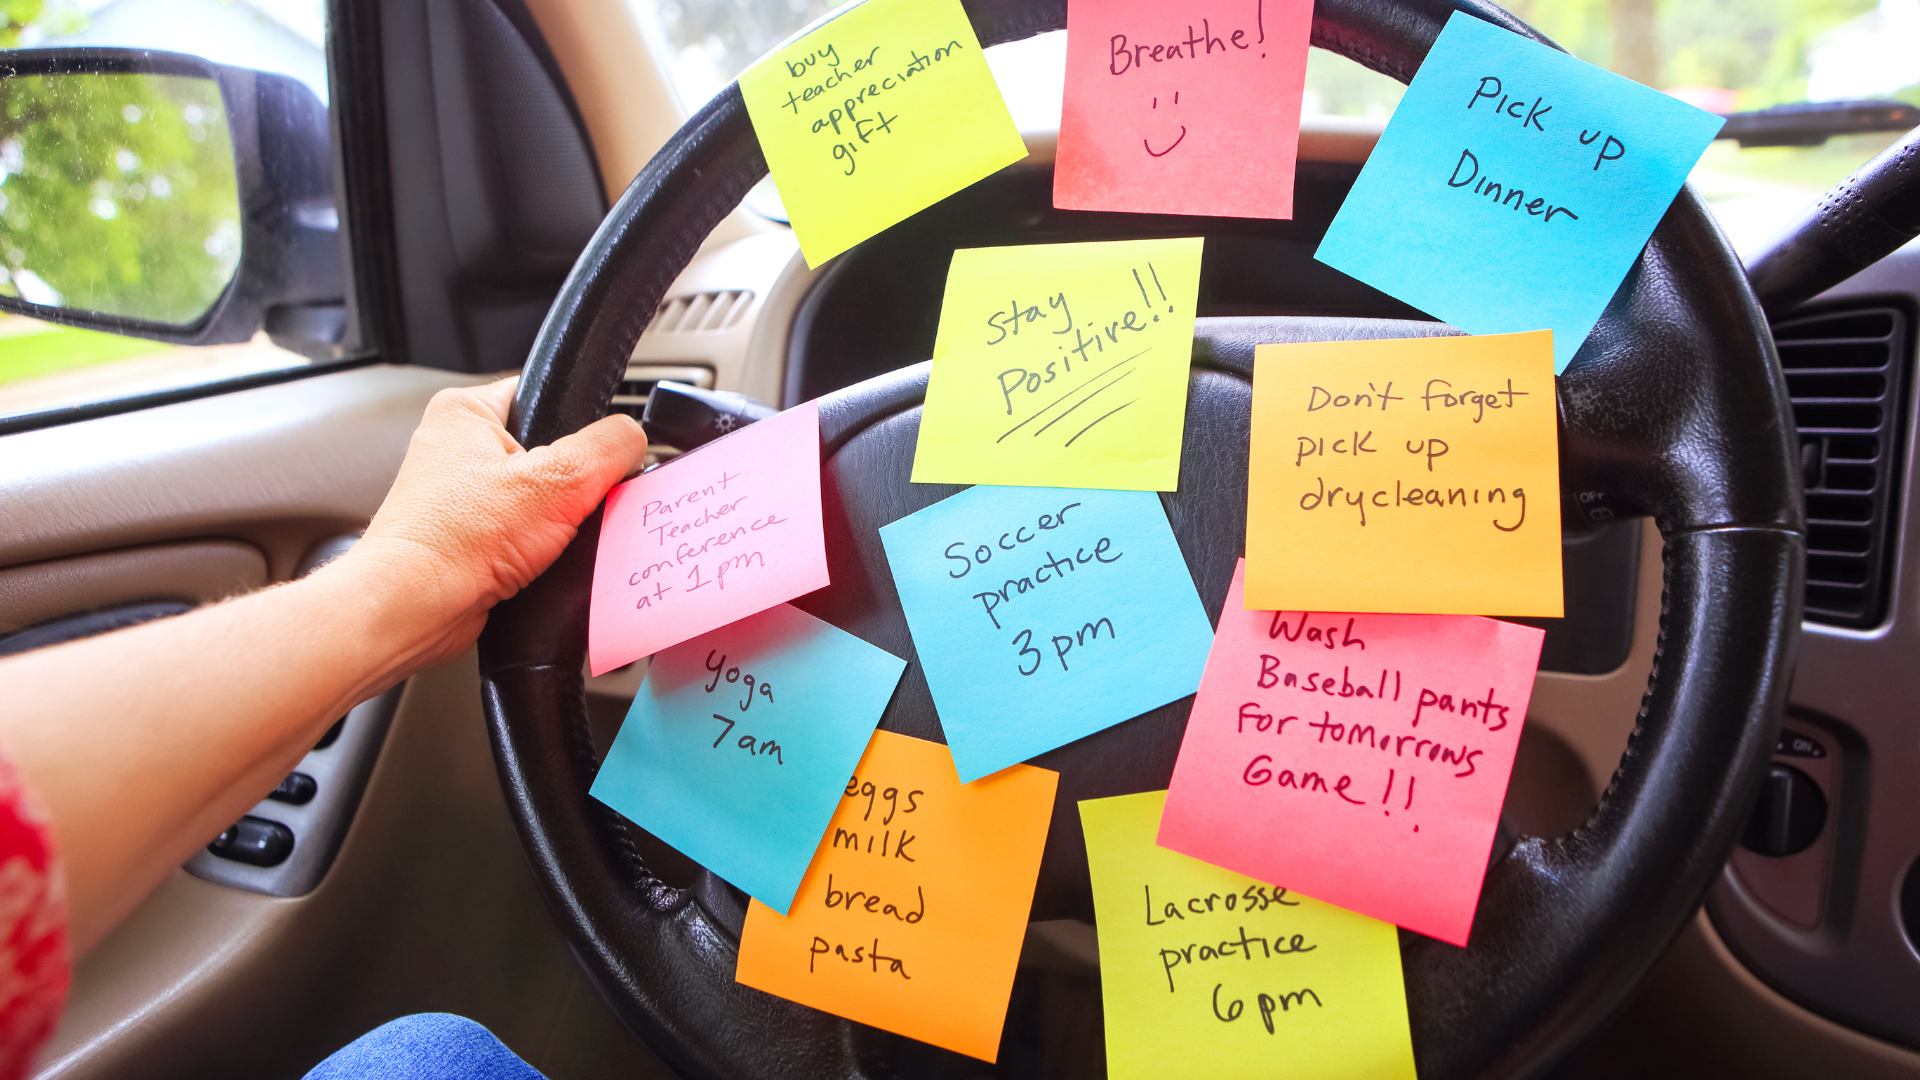 buy
teacher
appreciation
gift
Breathe!
Pick up
Dinner
Stay
Positive!!
Don't forget
pick up
drycleaning
Parent
Teacher
conference
at 1pm
Soccer
practice
3pm
Wash
Baseball pants
For tomorrows
Game!!
yoga
7am
eggs
milk
bread
pasta
Lacrosse
practice
6pm
OFF
ON